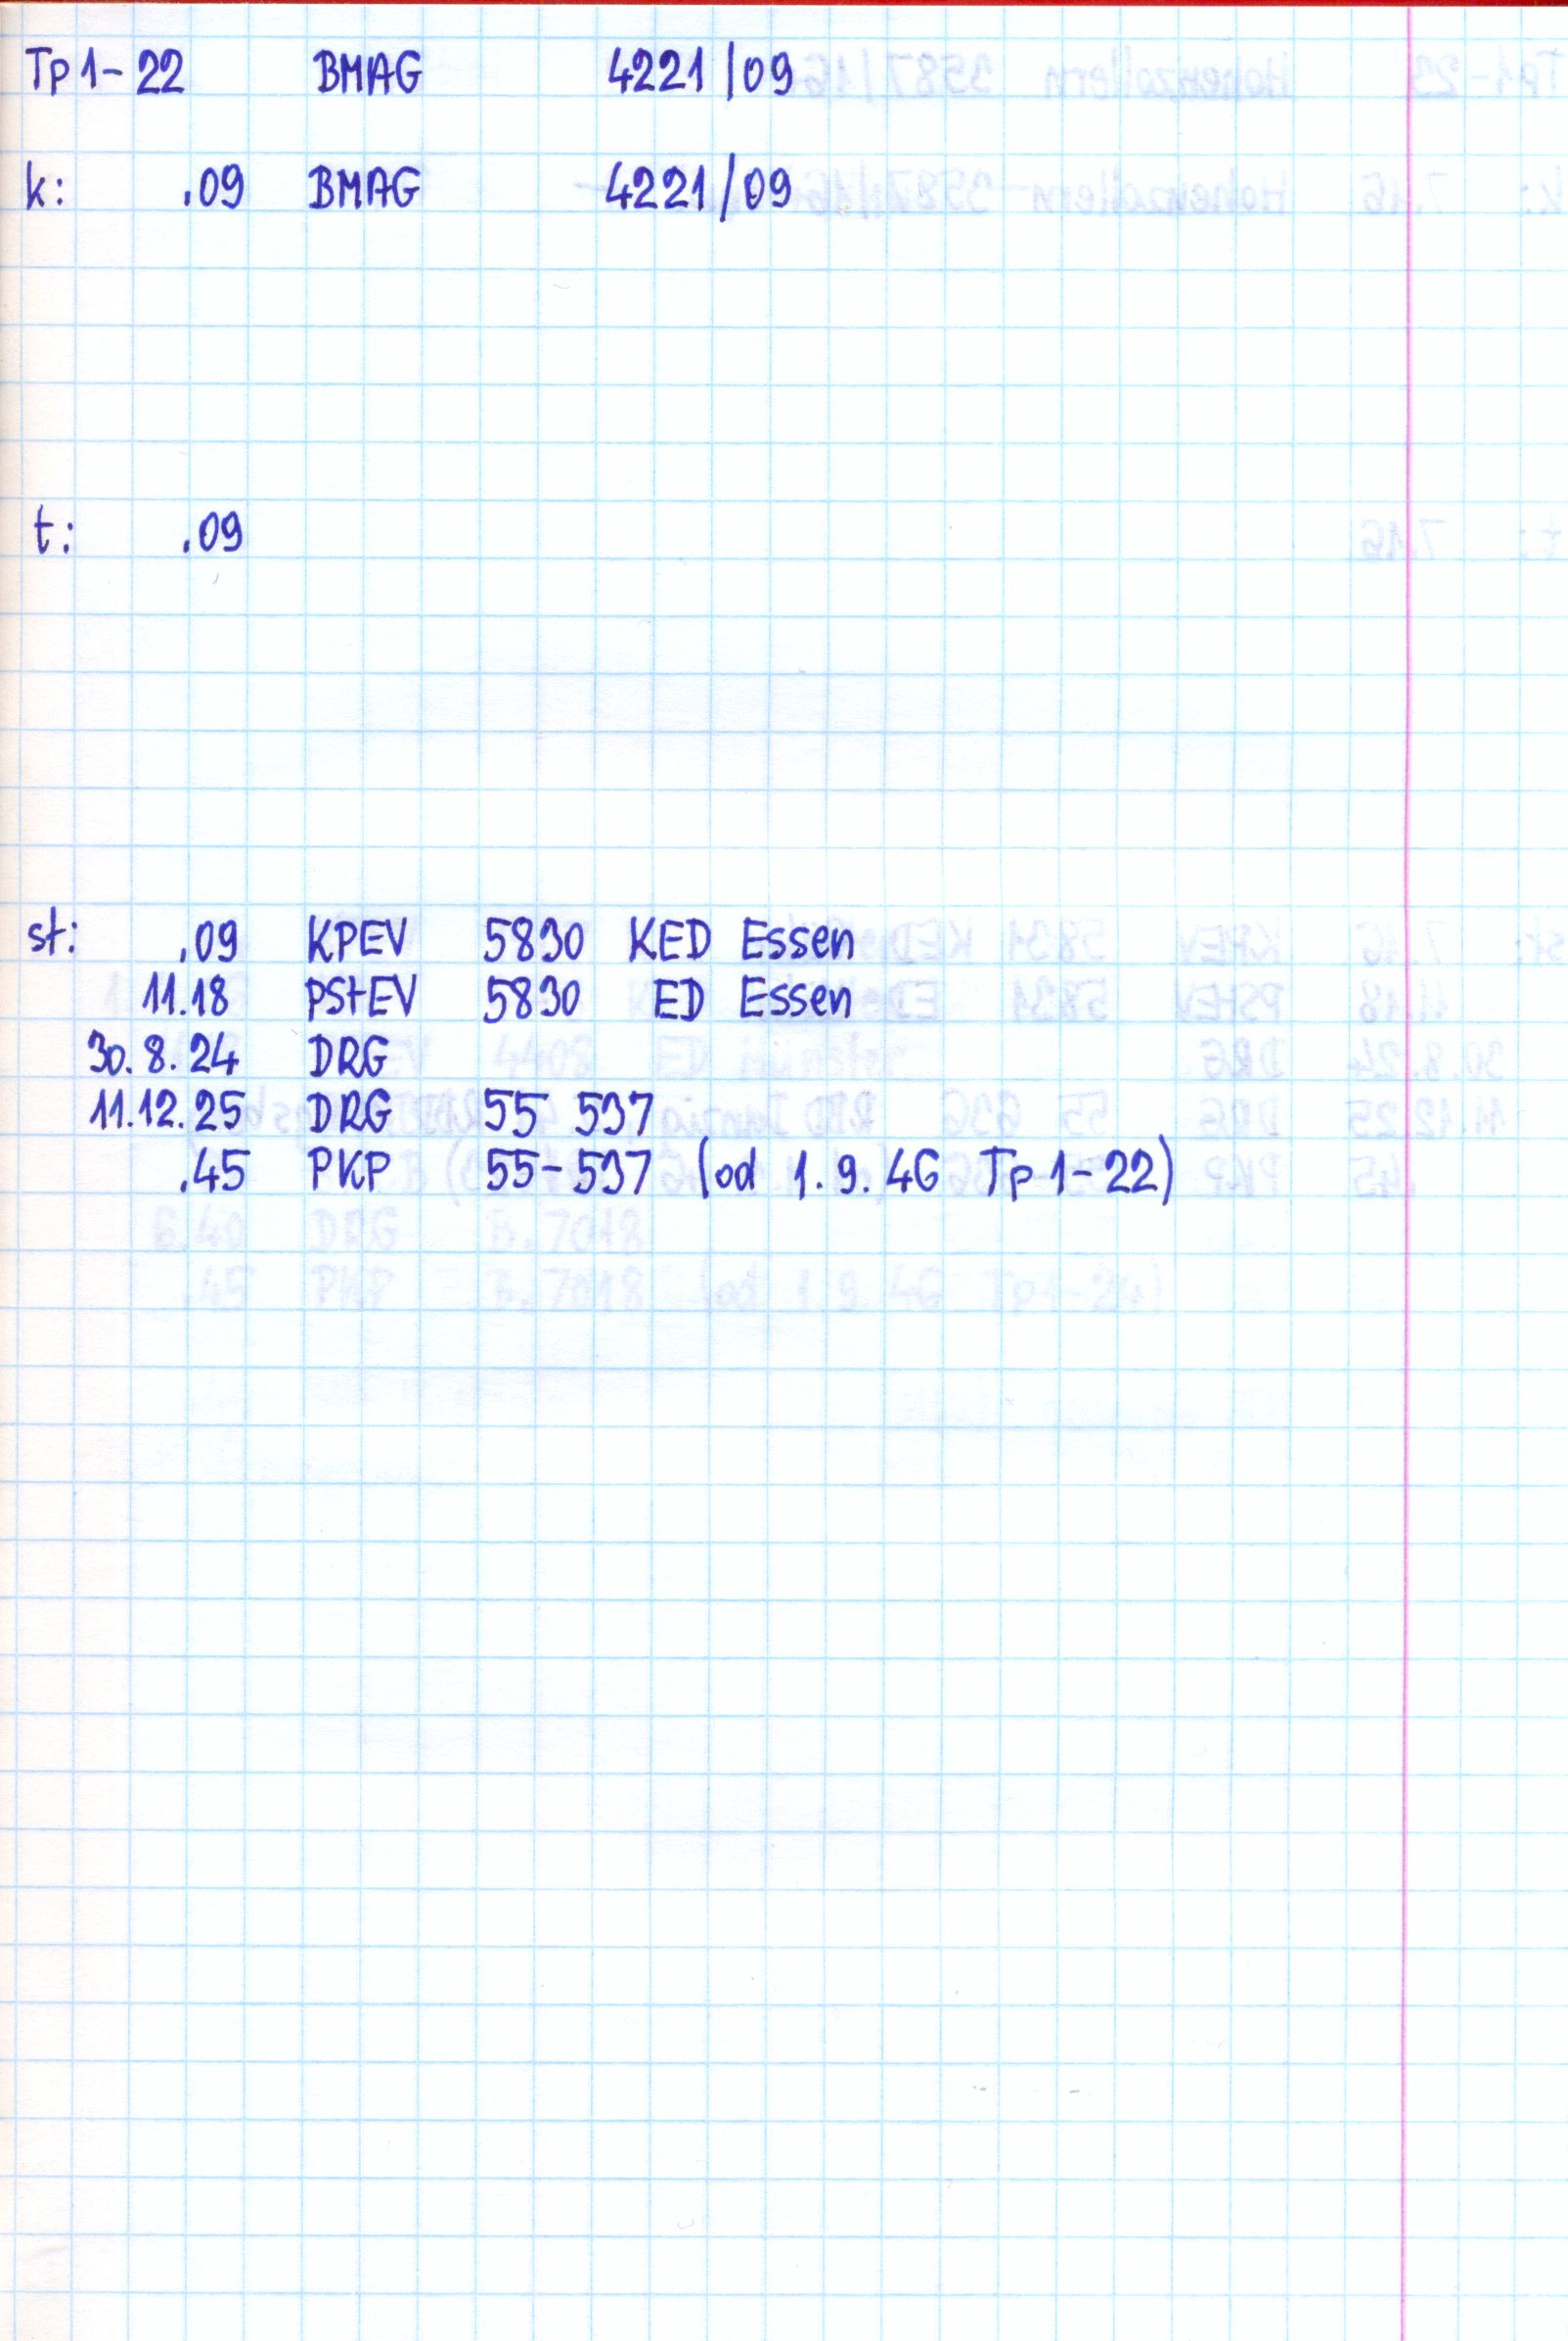 Tp1-22 BMAG 4221/09
k: .09 BMAG 4221/09
t: .09
st: .09 KPEV 5830 KED Essen
11.18 PStEV 5830 ED Essen
30.8.24 DRG
11.12.25 DRG 55 537
.45 PKP 55-537 (od 1.9.46 Tp1-22)